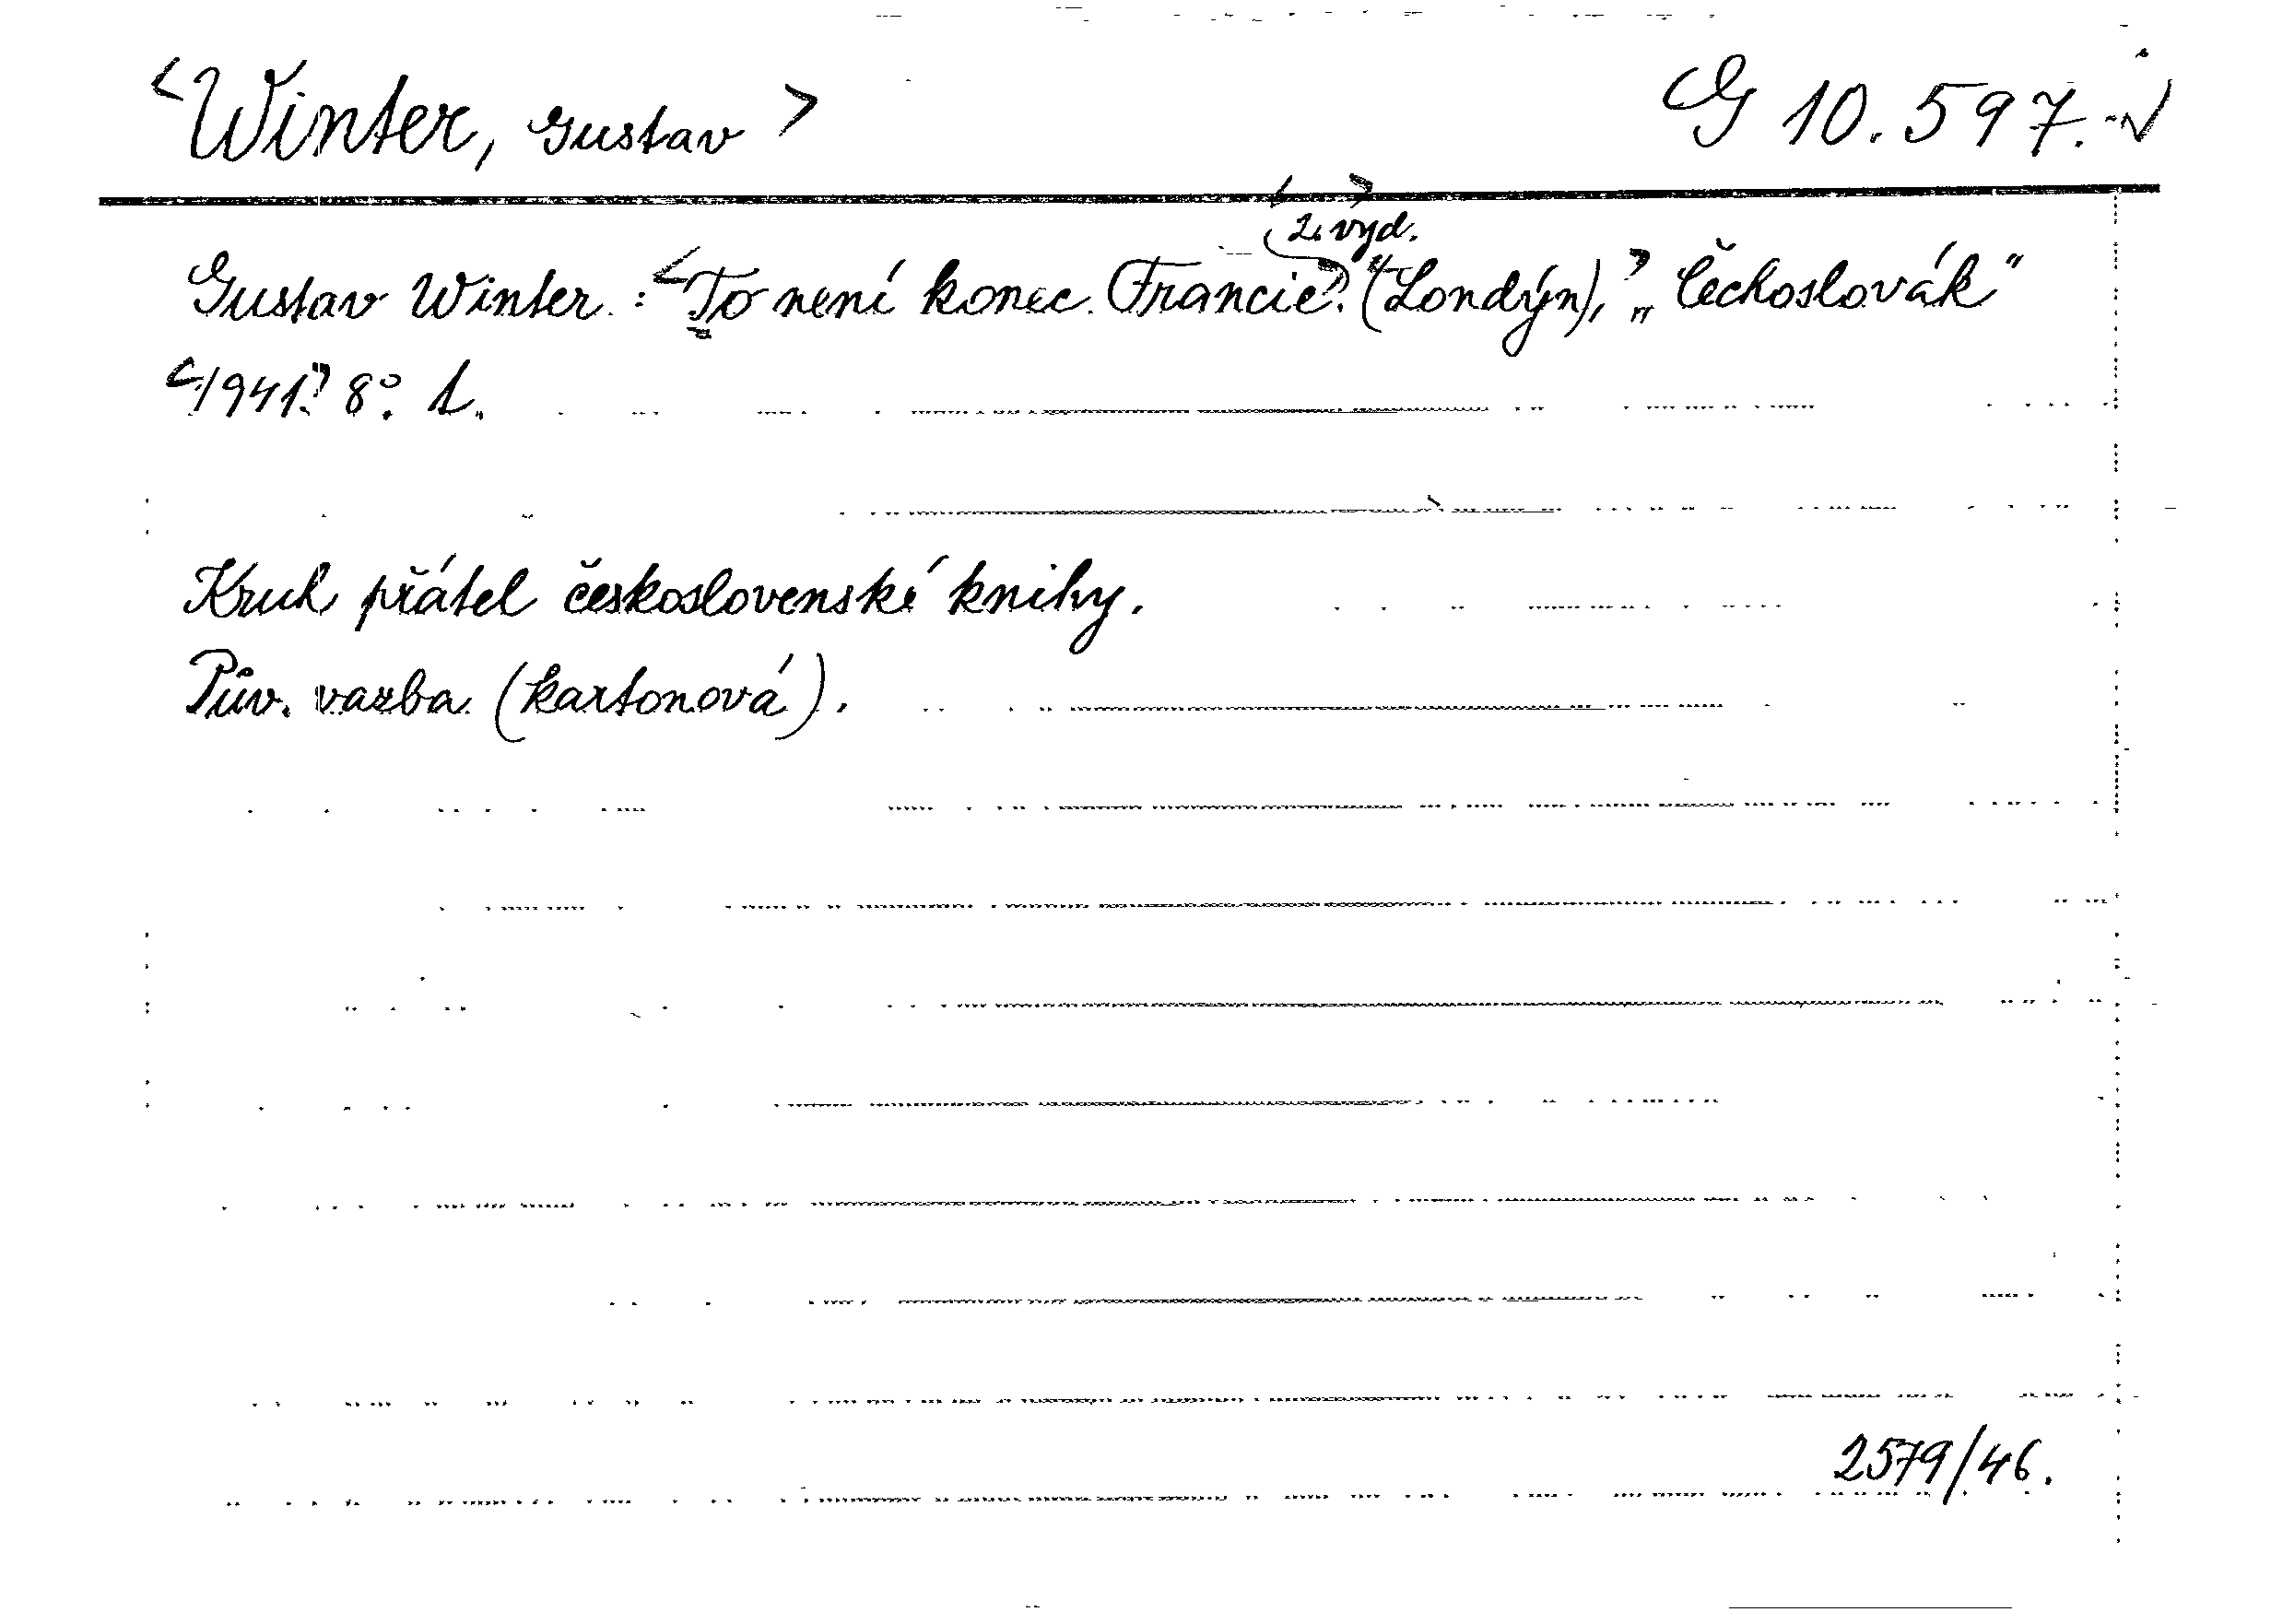 <Winter, Gustav> G 10.597.
<2. vyd.>
Gustav Winter: <To není konec Francie>. <(Londýn),> „Čechoslovák"
<1941>. 8°. 1.
Kruh přátel československé knihy.
Pův. vazba (kartonová).
2579/46.